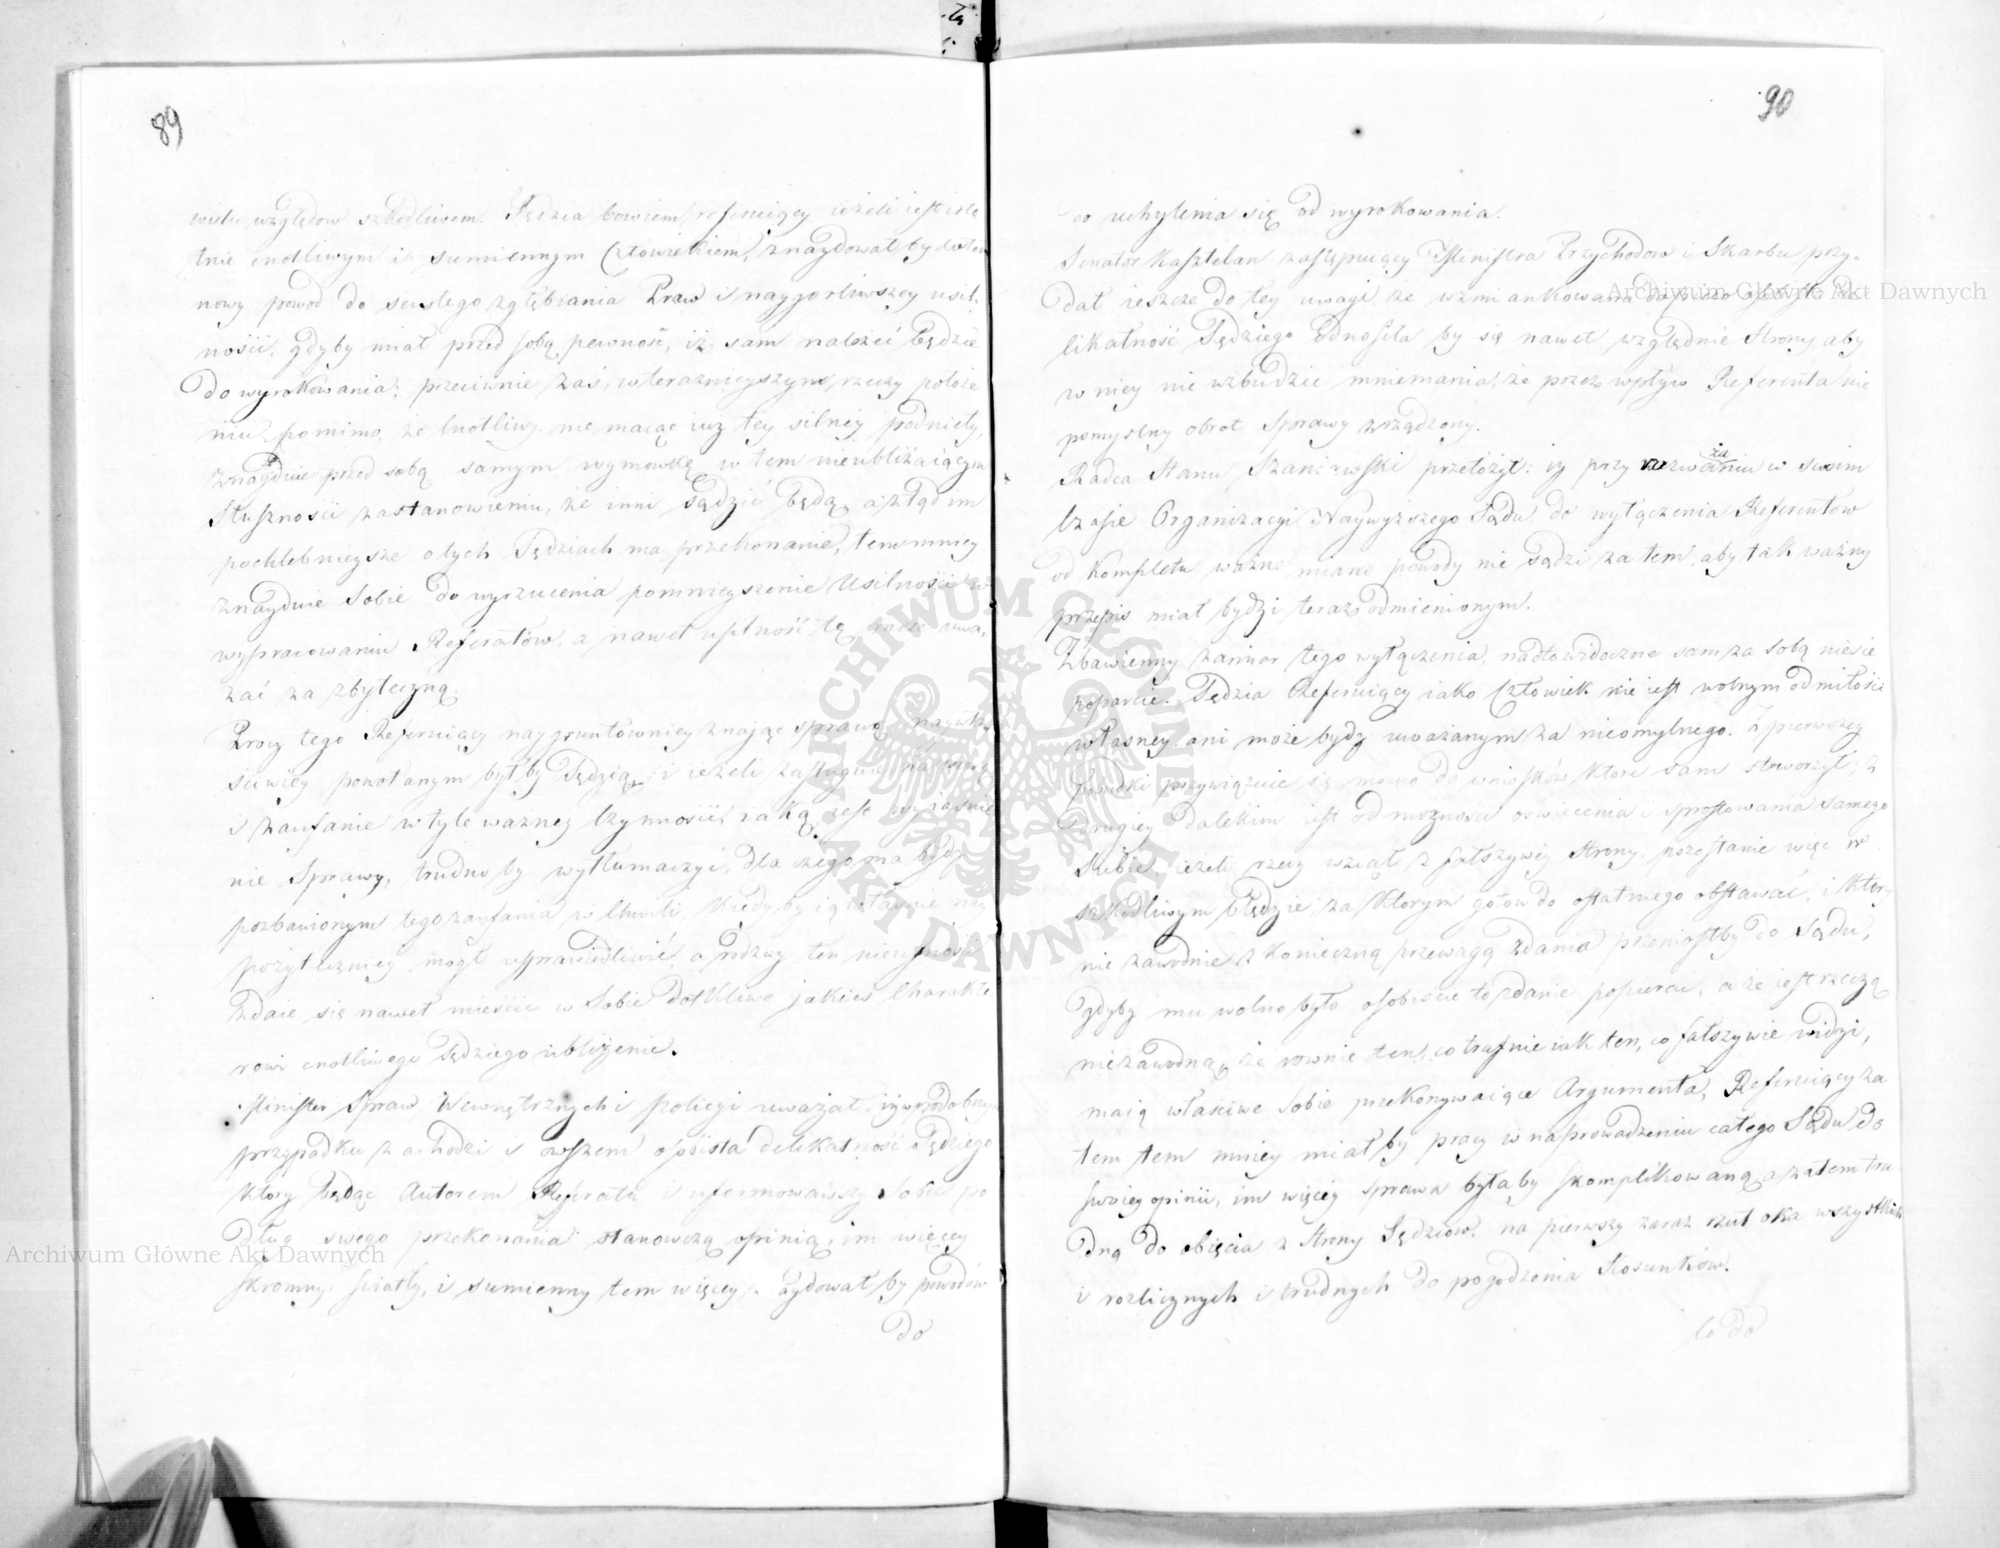 89
wielu względow szkodliwem. Sędzia bowiem referuiący ieżeli iest isto
tnie cnotliwym i sumiennym Człowiekiem, znaydował by dosta
nowy powod do scisłego zgłębiania Praw i naygorliwszey usil
ności, gdyby miał przed sobą pewność, iż sam należeć będzie
do wyrokowania; przeciwnie zaś, w teraznieyszym rzeczy położe
niu pomimo, że Cnotliwy nie maiąc iuż tey silney podniety,
znaydzie przed sobą samym wymowkę w tem nieubliżaiącym
słuszności zastanowieniu, że inni sądzić będą, a ztąd im
pochlebnieysze o tych Sędziach ma przekonanie, tem mniey
znaydzie sobie do wyrzucenia pomnieyszenie usilności w
wypracowaniu Referatów, a nawet usilność tę może uwa
żać za zbyteczną.
Procz tego Referuiący naygruntowniey znaiąc sprawę naywła
sciwiey powołanym byłby Sędzią, i ieżeli zasługuie na wiarę
i zaufanie w tyle ważney Czynności, iaką iest wyiaśnie
nie Sprawy, trudno by wytłumaczyć, dla czego ma bydź
pozbawionym tego zaufania w Chwili, kiedy by ią właśnie nay
pożyteczniey mogł usprawiedliwić, a rodzay ten nieufności
zdaie się nawet mieścić w Sobie dotkliwe jakieś Charakte
rowi cnotliwego Sędziego ubliżenie.
Minister Spraw Wewnętrznych i Policyi uważał, iż w podobnym
przypadku zachodzi i owszem osobista delikatność Sędziego
ktory będąc Autorem Referatu i uformowawszy sobie po
dług swego przekonania stanowczą opinią, im więcey
skromny, światły, i sumienny tem więcey znaydował by powodów
do
90
co uchylenia się od wyrokowania.
Senator Kasztelan zastępuiący Ministra Przychodow i Skarbu przy
dał ieszcze do tey uwagi, że wzmiankowana dopiero osobista de
likatność Sędziego odnosiła by się nawet względnie Strony, aby
w niey nie wzbudzić mniemania, że przez wpływ Referenta nie
pomyslny obrot sprawy zrządzony.
Radca Stanu Szaniawski przełożył: iż przy za
wzwaniu w swoim
Czasie Organizacyi Naywyższego Sądu, do wyłączenia Referentów
od Kompletu ważne miano powody nie sądzi zatem, aby tak ważny
przepis miał bydź teraz odmienionym.
Zbawienny zamiar tego wyłączenia, nadto widoczne sam za sobą niesie
poparcie. Sędzia Referuiący iako Człowiek nie iest wolnym od miłości
własney ani może bydz uważanym za nieomylnego. Z pierwszey
pobudki przywiązuie się mocno do wniosków które sam stworzył; z
drugiey dalekim iest od możności oświecenia i sprostowania samego
siebie, ieżeli rzecz wziął z fałszywey strony, pozostanie więc w
szkodliwym błędzie, za którym gotow do ostatniego obstawać, i który
nie zawodnie z konieczną przewagą zdania przeniosłby do Sądu,
gdyby mu wolno było osobiscie to zdanie popierać, a że iest rzeczą
niezawodną, że rownie ten, co trafnie iak ten, co fałszywie widzi,
maią właściwe sobie przekonywaiące Argumenta, Referuiący za
tem tem mniey miał by pracy w naprowadzeniu całego Sądu do
swoiey opinii, im więcey sprawa byłaby skomplikowaną, a zatem tru
dną do obięcia z strony Sędziów, na pierwszy zaraz rzut oka wszystkich
i rozlicznych i trudnych do pogodzenia Stosunków.
Co do
Archiwum Główne Akt Dawnych
Archiwum Główne Akt Dawnych
ARCHIWUM GŁÓWNE AKT DAWNYCH